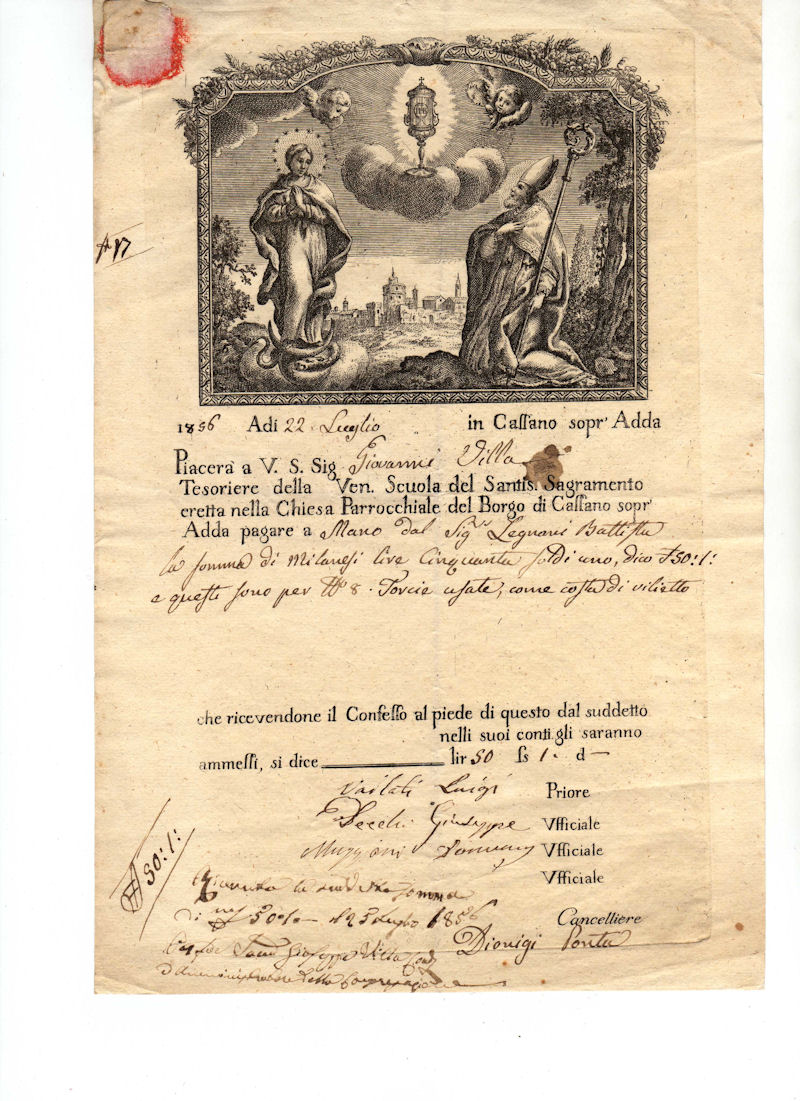 N 17
1856 Adi 22 Luglio in Caſſano sopr' Adda
Piacerà a V. S. Sig Giovanni Villa
Tesoriere della Ven. Scuola del Santis. Sagramento
eretta nella Chiesa Parrocchiale del Borgo di Caſſano sopr'
Adda pagare a Mano dal Sig.r Legnani Battista
la somma di Milanesi lire Cinquanta soldi uno, dico £ 50:1:
e questi sono per 8. Torcie usate, come costa di vilietto
che ricevendone il Confeſſo al piede di questo dal suddetto
nelli suoi conti gli saranno
ammeſſi, si dice lir 50 ſs 1. d —
Vailati Luigi Priore
Secchi Giuseppe Vfficiale
Vfficiale
Vfficiale
£ 50:1:
la suddetta somma
di 50:1 il 25 Luglio 1856 Cancelliere
Giuseppe Villa Dionigi Ponta
della